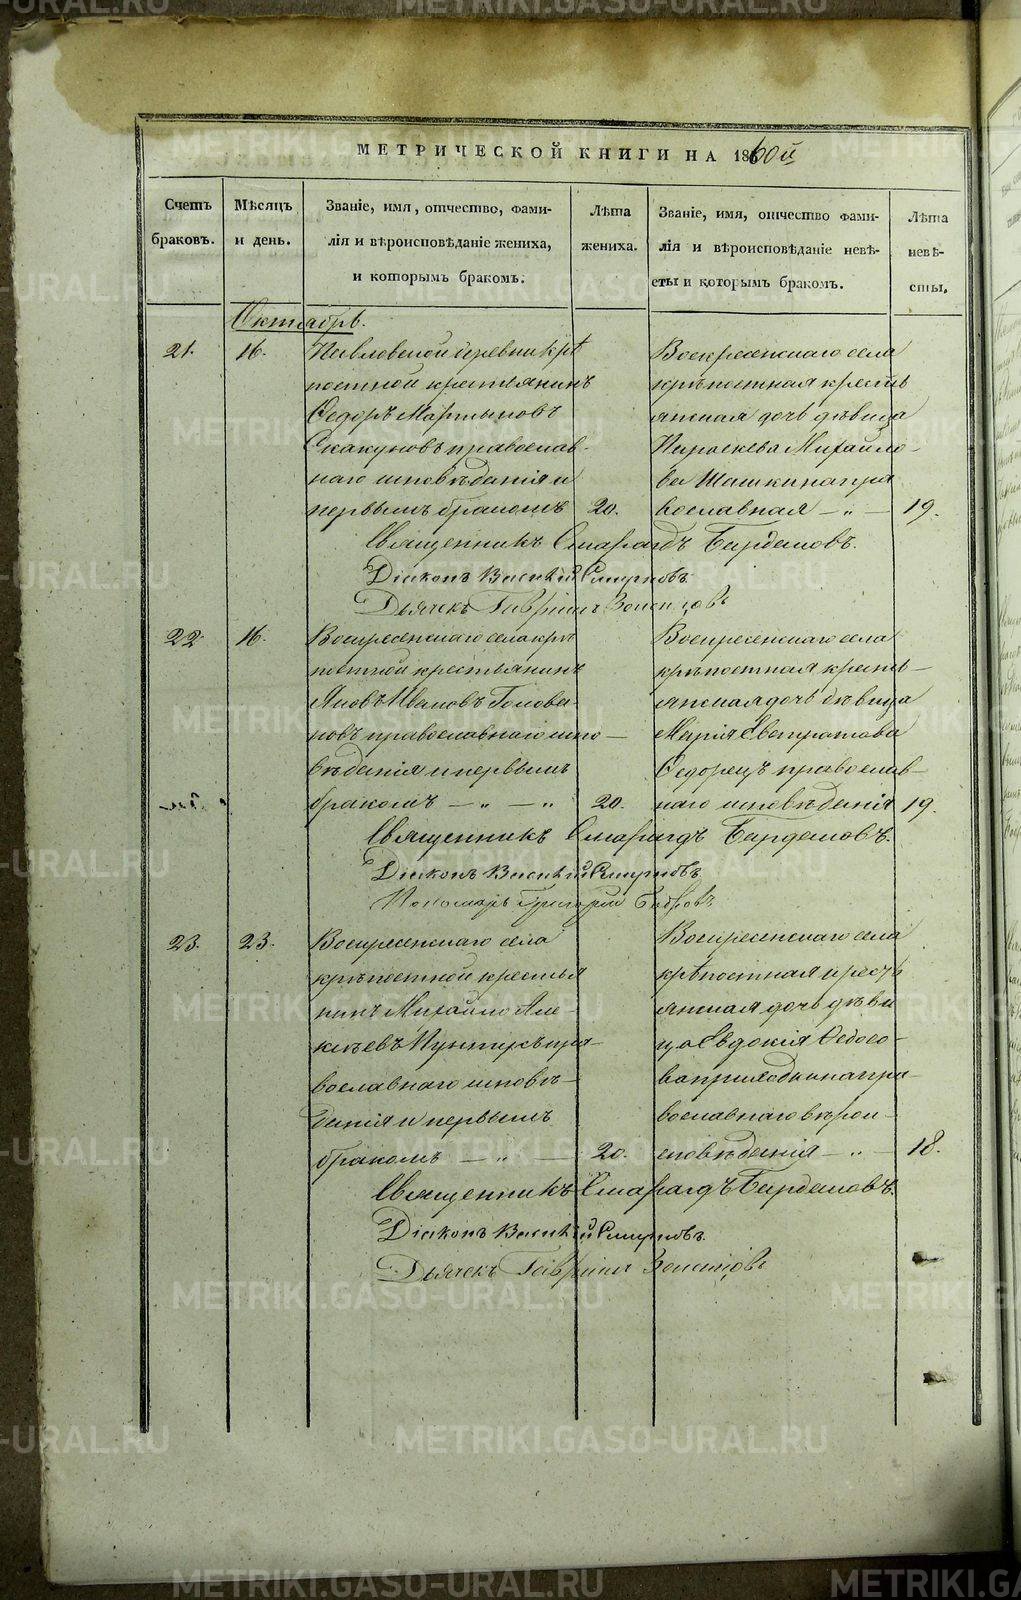 МЕТРИЧЕСКОЙ КНИГИ НА 1860й
Счетъ браковъ.
Мѣсяцъ и день.
Званіе, имя, отчество, фами-
лія и вѣроисповѣданіе жениха,
и которымъ бракомъ.
Лѣта жениха.
Званіе, имя, отчество фами-
лія и вѣроисповѣданіе невѣ-
сты и которымъ бракомъ.
Лѣта невѣ-
сты.
Октябрь.
21. 16.
Павловской деревни крѣ
постной крестьянинъ
Ѳедоръ Мартыновъ
Скакуновъ православ-
наго исповѣданія и
первымъ бракомъ 20.
Воскресенскаго села
крѣпостная кресть
янская дочь дѣвица
Параскева Михайло-
ва Шашкина пра
вославная — „ — 19.
Священникъ Смарагдъ Бирдемовъ.
Діаконъ Василій Смирновъ
Дьячекъ Гавріилъ
22. 16.
Воскресенскаго села крѣ
постной крестьянинъ
Яковъ Ивановъ Голова-
новъ православнаго испо—
вѣданія и первымъ
бракомъ — „ — „ 20.
Воскресенскаго села
крѣпостная кресть—
янская дочь дѣвица
Марія Евстратова
православ—
наго исповѣданія 19.
Священникъ Смарагдъ Бирдемовъ.
Діаконъ Василій Смирновъ
Пономарь Григорій
23. 23.
Воскресенскаго села
крѣпостной крестья
нинъ Михайло Але-
ксѣевъ пра-
вославнаго исповѣ—
данія и первымъ
бракомъ — „ — 20.
Воскресенскаго села
крѣпостная кресть
янская дочь дѣви
ца Евдокія Ѳедосо-
ва пра—
вославнаго вѣрои—
сповѣданія — „ — 18.
Священникъ Смарагдъ Бирдемовъ.
Діаконъ Василій Смирновъ
Дьячекъ Гавріилъ
METRIKI.GASO-URAL.RU